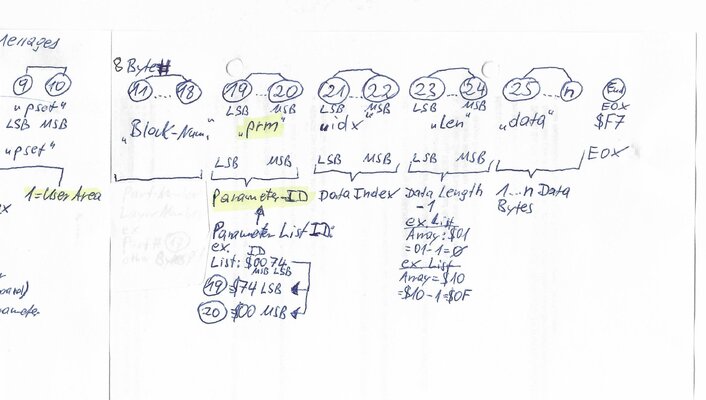 Messages
8 Byte
9 10 11 ... 18 19 ... 20 21 ... 22 23 ... 24 25 ... n End
"pset" LSB MSB LSB MSB LSB MSB EOX
LSB MSB "Block-Num." "prm" "idx" "len" "data" $F7
"pset" LSB MSB LSB MSB LSB MSB EOX
1=User Area Parameter-ID Data Index Data Length 1...n Data
-1 Bytes
Parameter List ID: ex. List
ex. ID Array: $01
List: $0074 = 01-1=0
MSB LSB ex. List
19 = $74 LSB Array = $10
20 = $00 MSB = $10-1=$0F